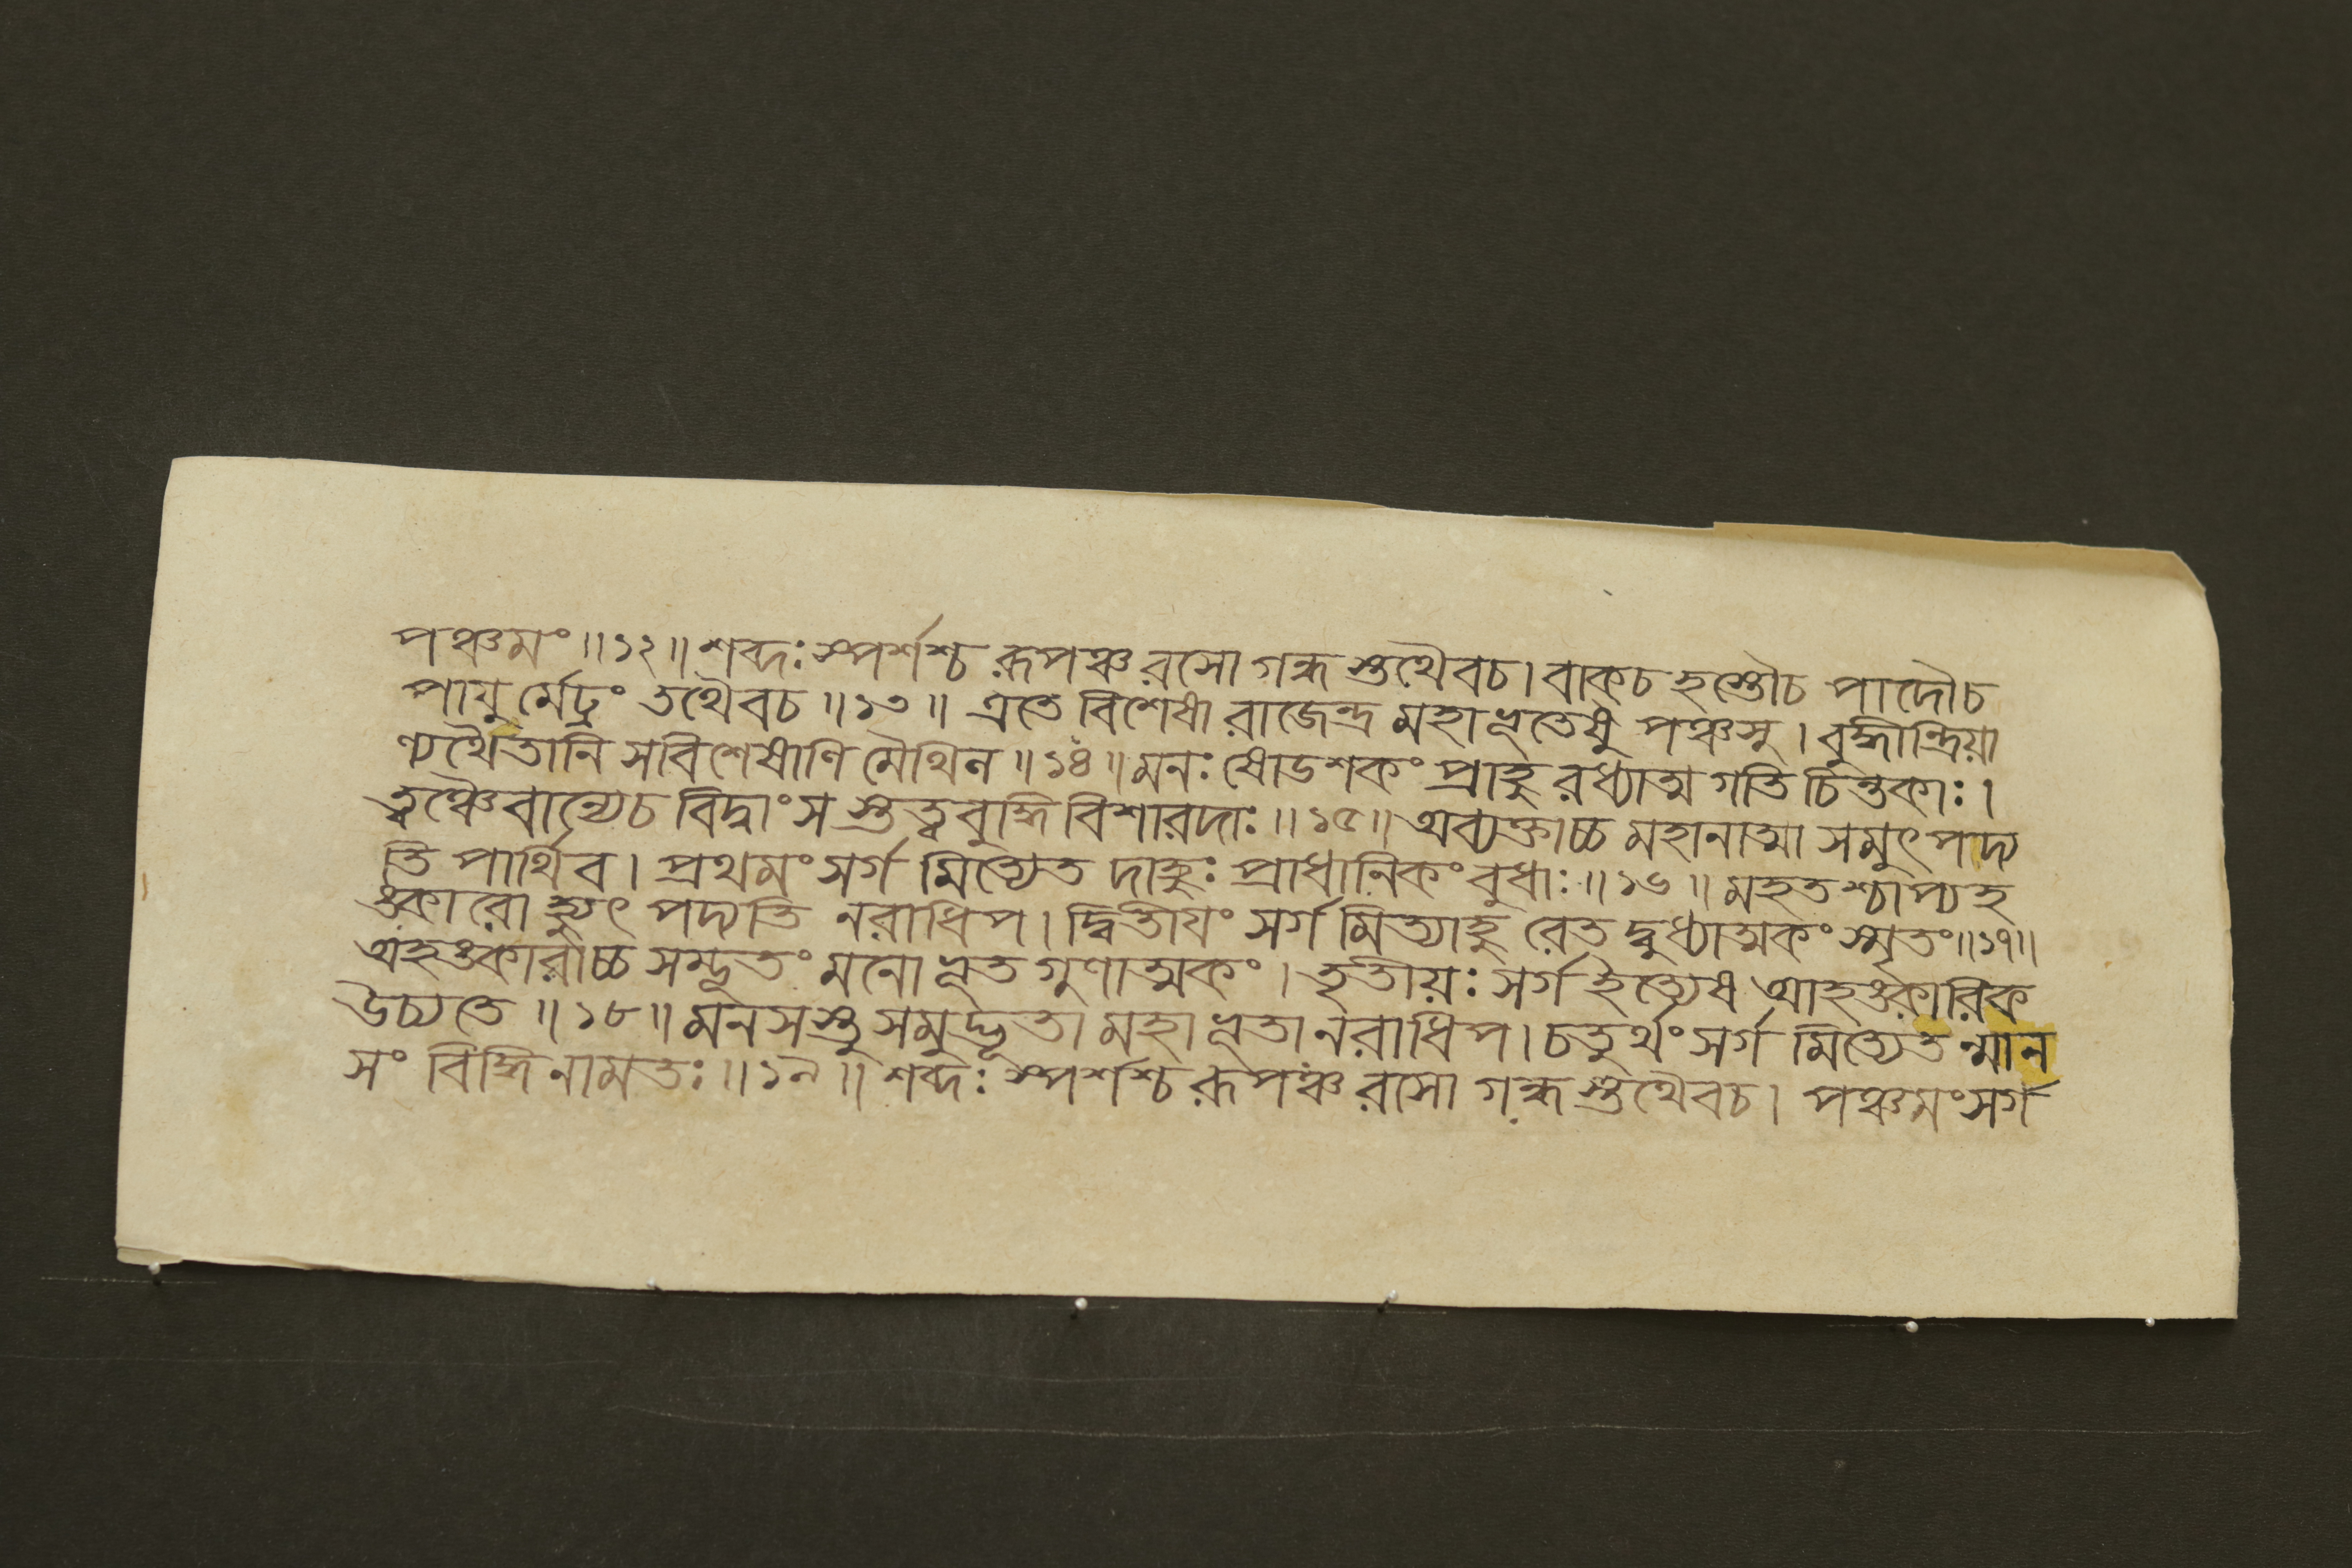 পঞ্চমং॥১২॥শব্দঃস্পর্শশ্চ রূপঞ্চ রসো গন্ধ স্তথৈবচ। বাকচ হস্তৌচ পাদৌচ
পাযু র্মেঢ্রং তথৈবচ॥১৩॥ এতে বিশেষা রাজেন্দ্র মহাভূতেষু পঞ্চসু। বুদ্ধীন্দ্রিয়া
ণ্যথৈতানি সবিশেষাণি মৈথিল॥১৪॥মনঃ ষোডশকং প্রাহু রধ্যাত্ম গতি চিন্তকাঃ।
ত্বঞ্চৈবান্যেচ বিদ্বাংস স্তত্ত্ববুদ্ধি বিশারদাঃ॥১৫॥অব্যক্তাচ্চ মহানাত্মা সমুৎপদ্য
তি পার্থিব। প্রথমংসর্গ মিত্যেত দাহুঃ প্রাধানিকং বুধাঃ॥১৬॥মহতশ্চাপ্যহ
ঙ্কারো হ্যুৎ পদ্যতি নরাধিপ। দ্বিতীযং সর্গমিত্যাহু রেত দ্বুধ্যাত্মকং স্মৃতং॥১৭॥
অহঙ্কারাচ্চ সম্ভূতং মনো ভূত গুণাত্মকং। তৃতীয়ঃ সর্গ ইত্যেষ আহঙ্কারিক
উচ্যতে॥১৮॥মনসস্তু সমুদ্ভূতা মহাভূতা নরাধিপ। চতুর্থং সর্গ মিত্যেত ন্মান
সং বিদ্ধি নামতঃ॥১৯॥শব্দঃ স্পর্শশ্চ রূপঞ্চ রসো গন্ধ স্তথৈবচ। পঞ্চমংসর্গ